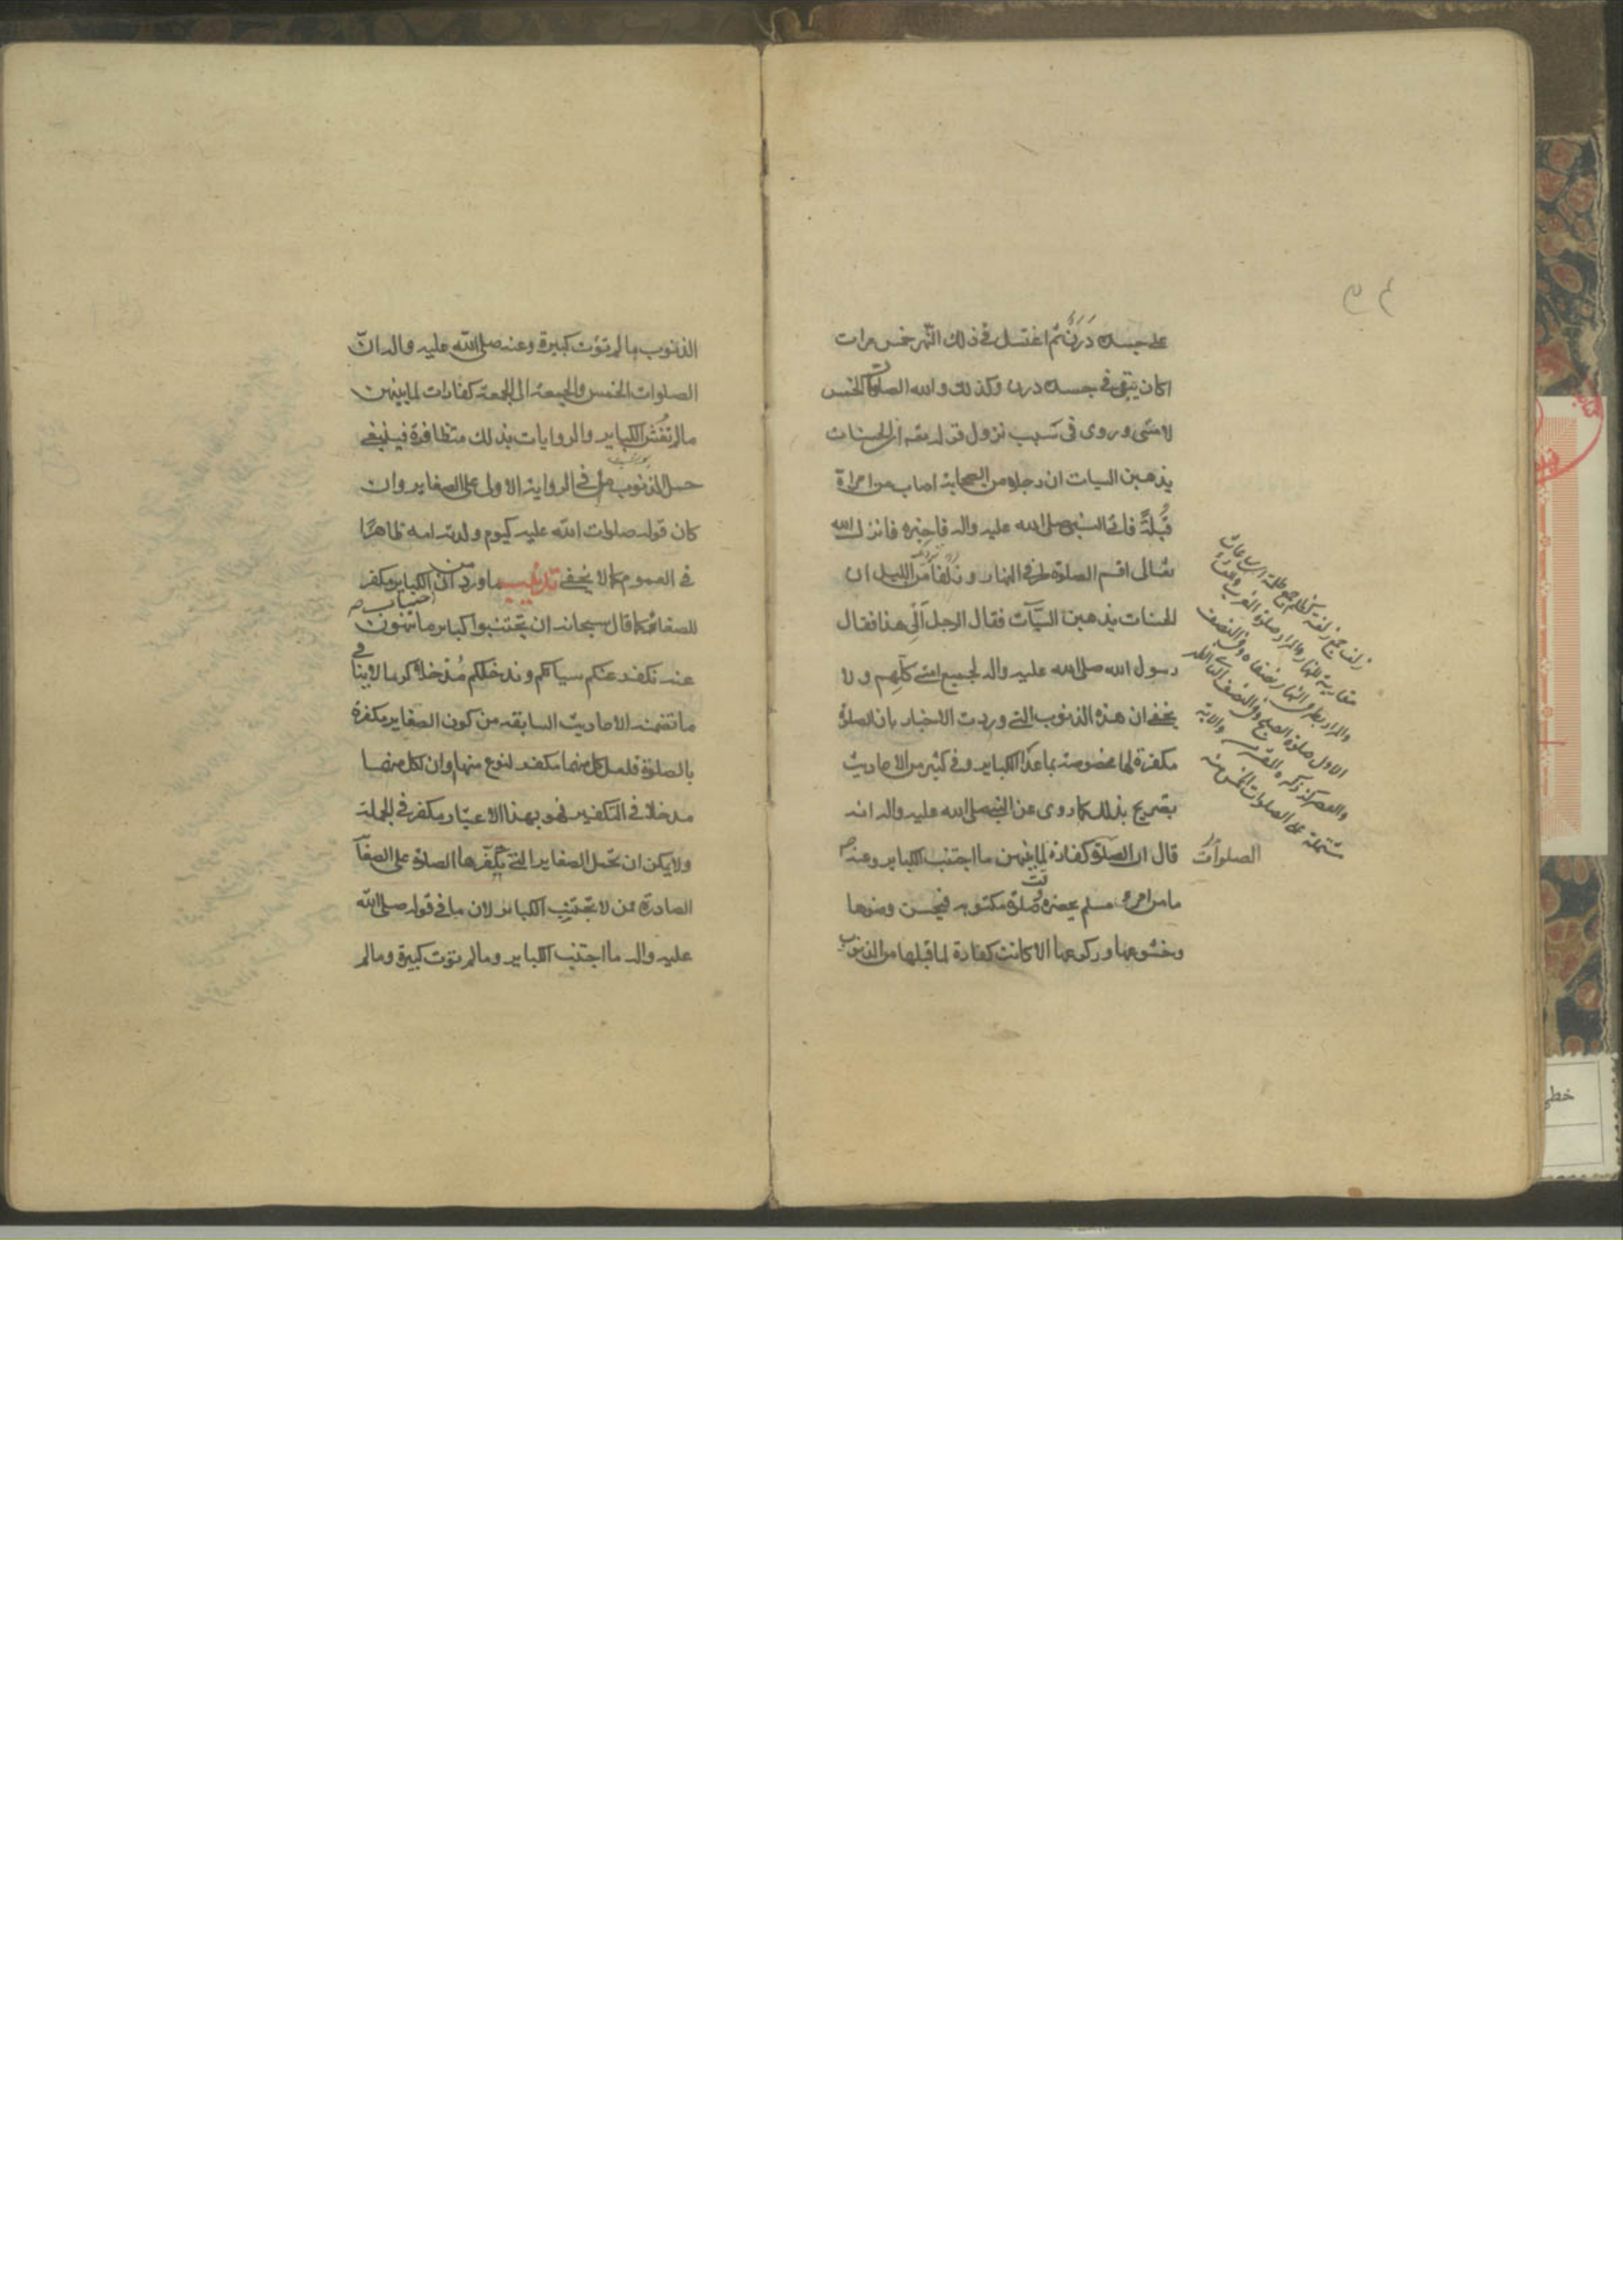 على جسده درن ثم اغتسل في ذلك النهر خمس مرات
اكان يبقى في جسده درن وكذلك والله الصلوات الخمس
لامتى وروى في سبب نزول قوله تعـ ان الحسنات
يذهبن السيات ان رجلا من الصحابة اصاب من امراة
قُبلةً فاتى النبي صلى الله عليه واله فاخبره فانزل الله
تعالى اقم الصلوة طرفي النهار وزلفا من الليل ان
الحسنات يذهبن السيّآت فقال الرجل ألي هذا فقال
رسول الله صلى الله عليه واله لجميع امتي كلّهم ولا
يخفى ان هذه الذنوب التي وردت الاخبار بان الصلوة
مكفرة لها مخصوصة بماعدا الكباير وفي كثير من الاحاديث
تصريح بذلك كما روى عن النبي صلى الله عليه واله انه
قال ان الصلوة كفارة لما بينهن ما اجتنب الكباير وعنه ص
ما من امرء مسلم يحضره صلوة مكتوبه فيحسن وضوها
وخشوعها وركوعها الا كانت كفارة لما قبلها من الذنوب
الصلوات
زلف جمع زلفة كظلم جمع ظلمة اى ساعات
والمراد بطرفي النهار نصفاه وفي النصف
الاول صلوة الصبح وفي النصف الثاني الظهر
مشتملة على الصلوات الخمس منه
الذنوب ما لم تؤت كبيرة وعنه صلى الله عليه واله ان
الصلوات الخمس والجمعة الى الجمعة كفارات لما بينهن
ما لم تُغش الكباير والروايات بذلك متظافرة فينبغي
حمل الذنوب في الرواية الاولى على الصغاير وان
كان قوله صلوات الله عليه كيوم ولدته امه ظاهرًا
في العموم كما لا يخفى تذنيب ما ورد من ان اجتناب الكباير مكفر
للصغاير كما قال سبحانه ان تجتنبوا كباير ما تنهون
عنه نكفر عنكم سياتكم وندخلكم مُدخلا كريما لا ينافي
ما تضمنه الاحاديث السابقه من كون الصغاير مكفرة
بالصلوة فلعل كل منهما مكفر لنوع منها وان لكل منهما
مدخلا في التكفير فهو بهذا الاعتبار مكفر في الجملة
ولا يمكن ان تحمل الصغاير التي يكفّرها الصلوة على الصغاير
الصادرة عمن لا يجتنب الكباير لان ما في قوله صلى الله
عليه واله ما اجتنب الكباير وما لم تؤت كبيرة وما لم
خطى